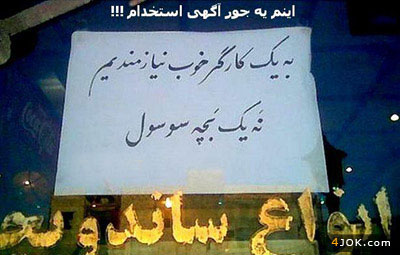 اینم یه جور آگهی استخدام !!!
به یک کارگر خوب نیازمندیم
نه یک بچه سوسول
انواع ساندویچ
4JOK.com